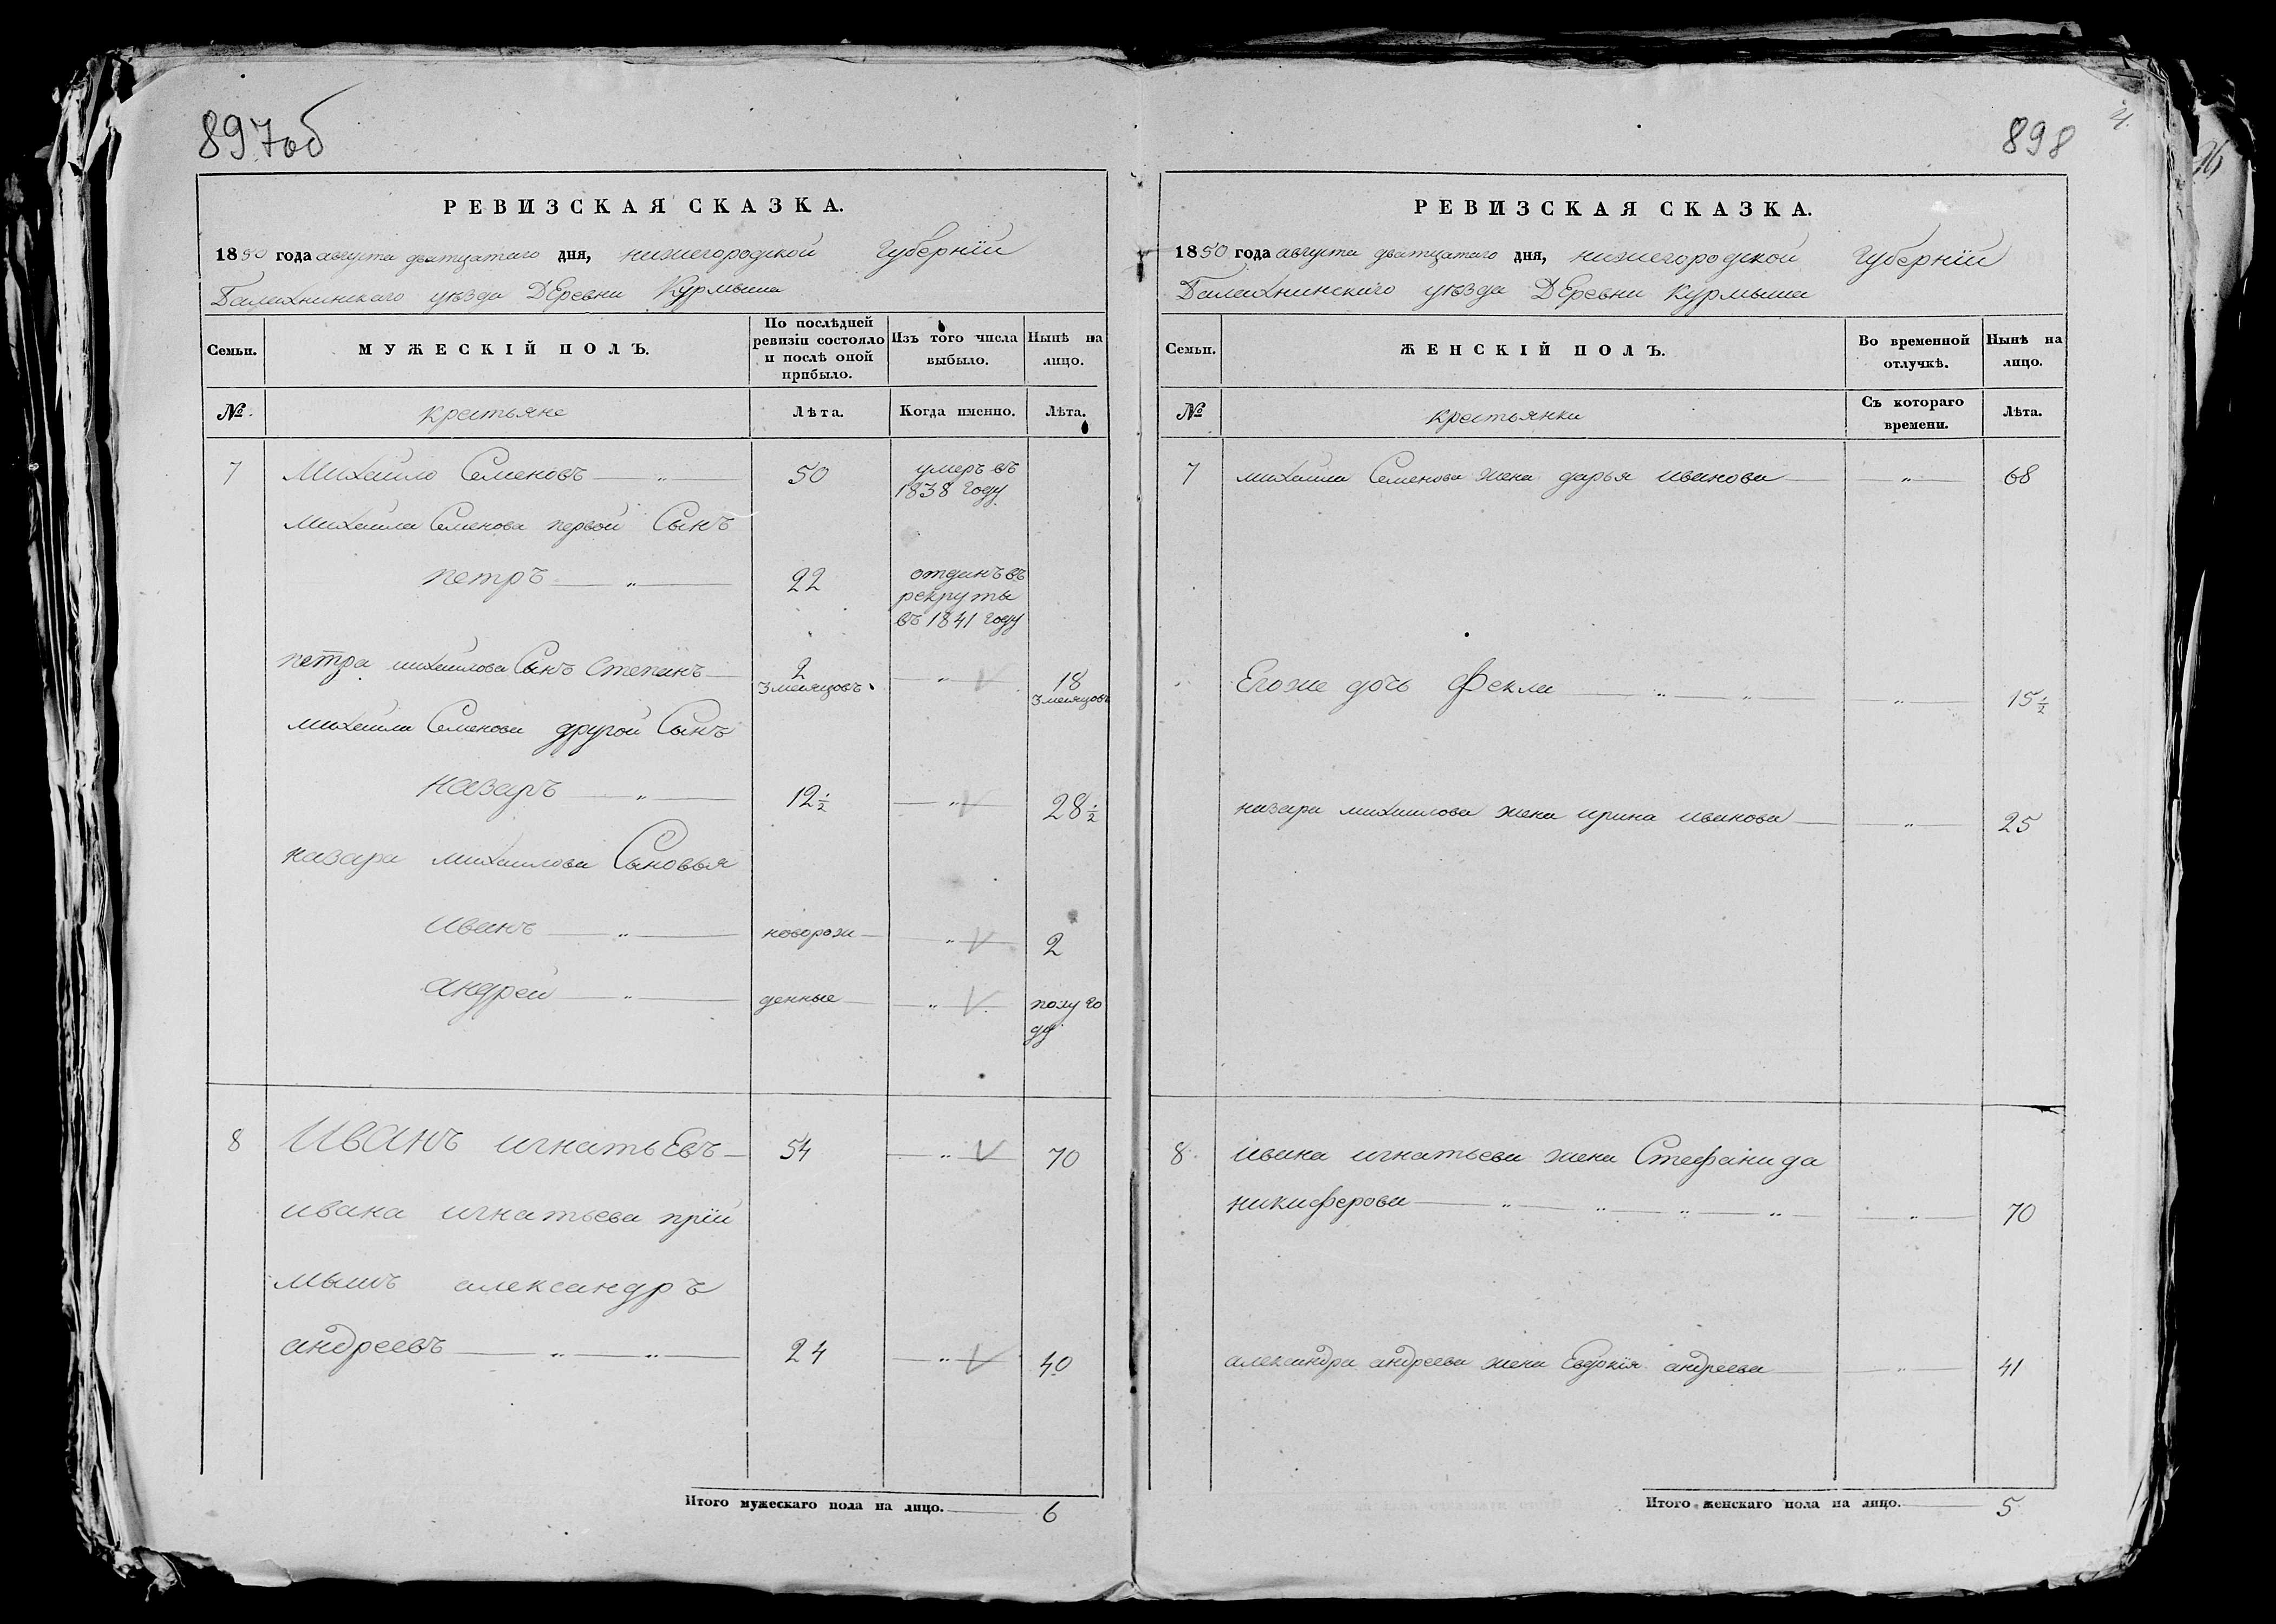 897об
РЕВИЗСКАЯ СКАЗКА.
1850 года августа дватцатаго дня, нижегородской Губернїи
Балахнинскаго уѣзда ДЕревни Курмыша
Семьи.
МУЖЕСКІЙ ПОЛЪ.
По послѣдней ревизіи состояло и послѣ оной прибыло.
Изъ того числа выбыло.
Нынѣ на лицо.
№.
крестьяне
Лѣта.
Когда именно.
Лѣта.
7 Михайло Семеновъ — „ — 50 умеръ въ 1838 году
Михайла Семенова первой Сынъ
петръ — „ — 22 отданъ въ рекруты въ 1841 году
петра михайлова Сынъ Степанъ — 2 3 месяцовъ — „ — 18 3 месяцовъ
михайла Семенова другой Сынъ
назаръ — „ — 12 1/2 — „ — 28 1/2
назара михайлова Сыновья
иванъ — „ — новорож — „ — 2
андрей — „ — денные — „ — полуго ду
8 ИВАНЪ игнатьЕвъ — 54 — „ — 70
ивана игнатьева прїи
мышъ александръ
андреевъ — „ — „ — 24 — „ — 40
Итого мужескаго пола на лицо. — 6
4.
898
РЕВИЗСКАЯ СКАЗКА.
1850 года августа дватцатаго дня, нижегородской Губернїи
Балахнинскаго уѣзда ДЕревни Курмыша
Семьи.
ЖЕНСКІЙ ПОЛЪ.
Во временной отлучкѣ.
Нынѣ на лицо.
№
крестьянки
Съ котораго времени.
Лѣта.
7 михайла Семенова жена дарья иванова — „ — 68
Егоже дочь Фекла — „ — „ — „ — 15 1/2
назара михайлова жена ирина иванова — „ — 25
8. ивана игнатьева жена Стефанида
никиферова — „ — „ — „ — „ — „ — 70
александра андреева жена Евдокїя андреева — „ — 41
Итого женскаго пола на лицо. — 5